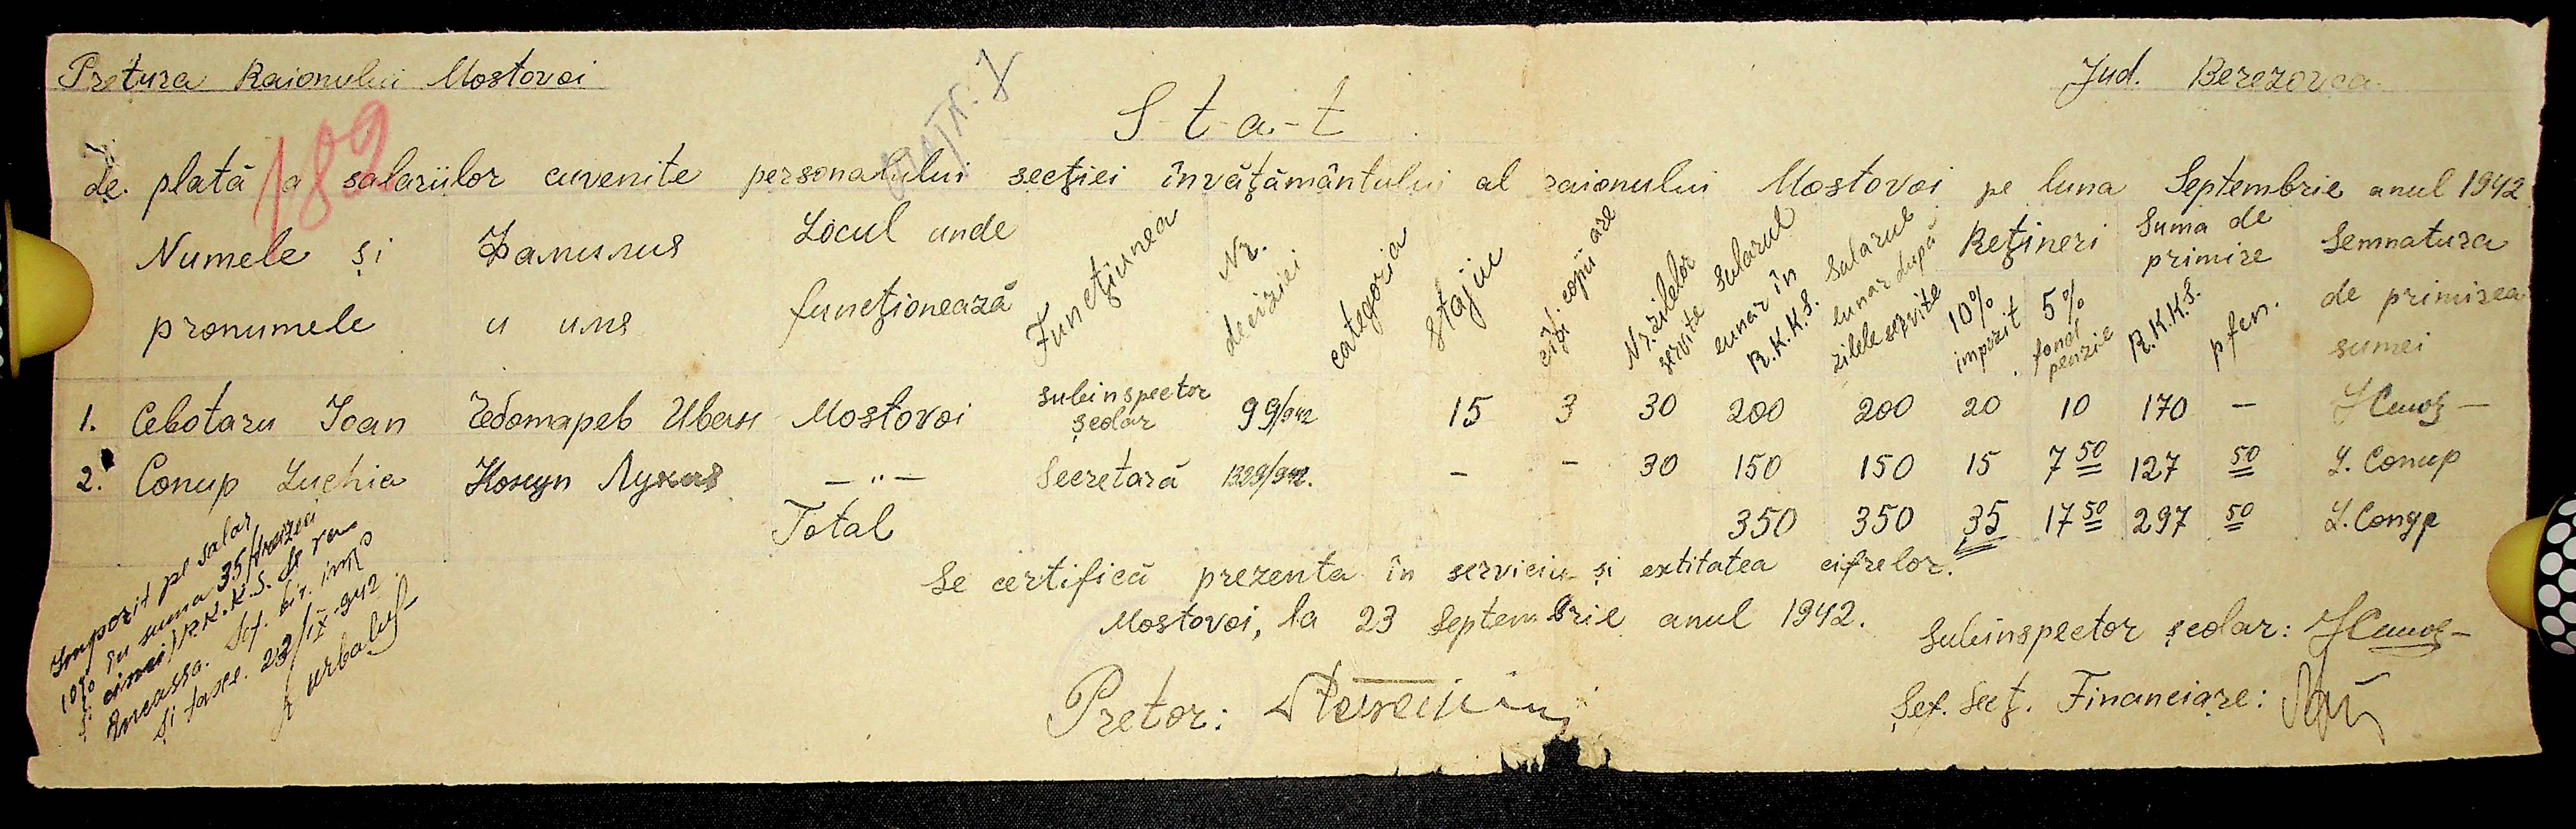 Pretura Raionului Mostovoi
Jud. Berezovca
S-t-a-t
189
de plată a salariilor cuvenite personalului secţiei învăţământului al raionului Mostovoi pe luna Septembrie anul 1942
Numele şi pronumele
Фамилия и имя
Locul unde funcţionează
Funcţiunea
Nr. deciziei
categoria
stajiu
câţi copii are
Nr. zilelor servite
Salarul lunar în R.K.K.S.
Salarul lunar după zilele servite
Reţineri
10% impozit
5% fond penzie
Suma de primire
R.K.K.S.
pfen.
Semnatura de primirea sumei
1. Cebotaru Ioan Чеботарев Иван Mostovoi subinspector şcolar 99/942 15 3 30 200 200 20 10 170 —
2. Conup Luchia Конуп Лукия — " — Secretară 1329/942. - - 30 150 150 15 7 50 127 50 L. Conup
Total 350 350 35 17 50 297 50 L. Conup
Se certifică prezenta în serviciu şi extitatea cifrelor.
Mostovoi, la 23 Septembrie anul 1942.
Pretor:
Subinspector şcolar:
Şef. Secţ. Financiare:
Impozit pe salar
10% în suma 35/treizeci
şi cinci/R.K.K.S. se va
încassa. Şef. bir. imp
şi taxe. 23/IX 942